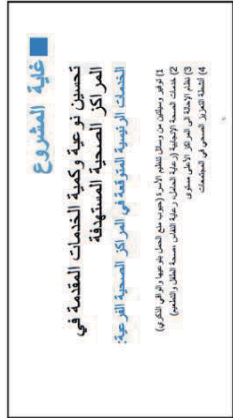 غاية المشروع
تحسين نوعية وكمية الخدمات المقدمة في
المراكز الصحية المستهدفة
الخدمات الرئيسية المتوقعة في المراكز الصحية الفرعية:
1) توفير وسيلتين من وسائل تنظيم الأسرة (حبوب منع الحمل بنوعيها والواقي الذكري)
2) خدمات الصحة الإنجابية (رعاية الحامل، رعاية النفاس، صحة الطفل والتطعيم)
3) نظام الإحالة الى المراكز الأعلى مستوى
4) أنشطة التعزيز الصحي في المجتمعات